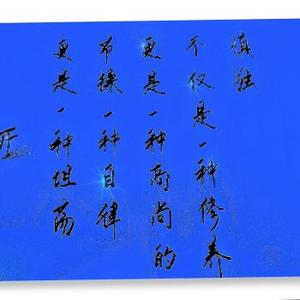 慎独
不仅是一种修养
更是一种高尚的
节操一种自律
更是一种坦荡